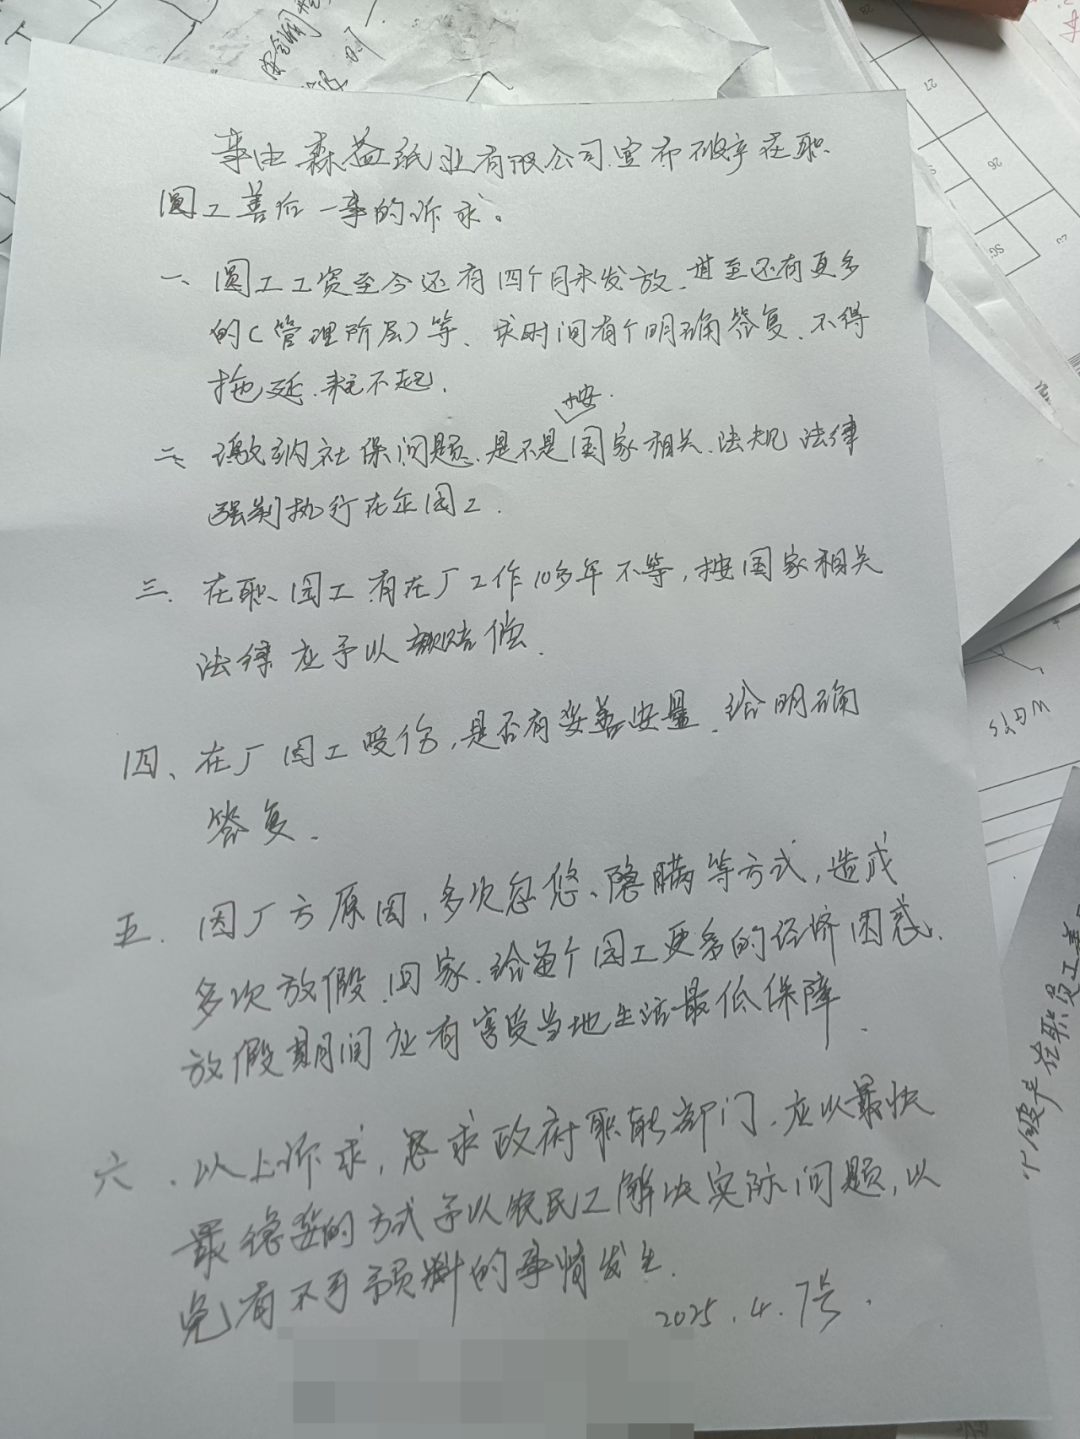 事由森益纸业有限公司.宣布破产在职
圆工善后一事的诉求。
一、圆工工资至今还有四个月未发放.甚至还有更多
的(管理阶层)等、求时间有个明确答复、不得
拖延.耗不起.
按.
二、缴纳社保问题.是不是国家相关.法规法律
强制执行在企园工.
三、在职、园工.有在厂工作10多年不等,按国家相关
法律应予以赔偿.
四、在厂园工受伤,是否有妥善安置.给明确
答复.
五.因厂方原因,多次忽悠、隐瞒等方式,造成
多次放假.回家.给每个园工更多的经济困惑.
放假期间应有享受当地生活最低保障.
六、以上诉求,恳求政府职能部门.应以最快
最稳妥的方式予以农民工解决实际问题,以
免有不可预料的事情发生.
2025.4.7号.
破产在职员工善
27
26
SG
3